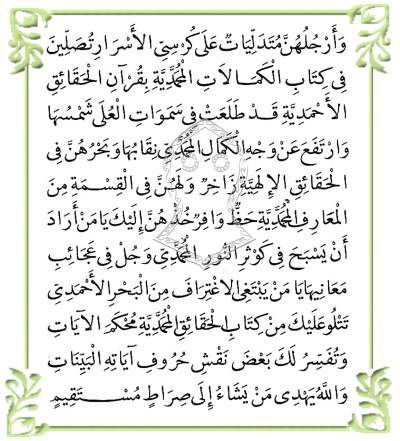 وَأَرْجُلُهُنَّ مُتَدَلِّيَاتٌ عَلَى كُرْسِيِّ الْأَسْرَارِ تُصَلِّينَ
فِي كِتَابِ الْكَمَالَاتِ الْمُحَمَّدِيَّةِ بِقُرْآنِ الْحَقَائِقِ
الْأَحْمَدِيَّةِ قَدْ طَلَعَتْ فِي سَمَوَاتِ الْعُلَى شَمْسُهَا
وَارْتَفَعَ عَنْ وَجْهِ الْكَمَالِ الْمُحَمَّدِيِّ نِقَابُهَا وَبَحْرُهُنَّ فِي
الْحَقَائِقِ الْإِلَهِيَّةِ زَاخِرٌ وَلَهُنَّ فِي الْقِسْمَةِ مِنَ
الْمَعَارِفِ الْمُحَمَّدِيَّةِ حَظٌّ وَافِرٌ خُذْهُنَّ إِلَيْكَ يَا مَنْ أَرَادَ
أَنْ يَسْبَحَ فِي كَوْثَرِ النُّورِ الْمُحَمَّدِيِّ وَجُلْ فِي عَجَائِبِ
مَعَانِيهَا يَا مَنْ يَبْتَغِي الْاِغْتِرَافَ مِنَ الْبَحْرِ الْأَحْمَدِيِّ
تَتْلُو عَلَيْكَ مِنْ كِتَابِ الْحَقَائِقِ الْمُحَمَّدِيَّةِ مُحْكَمَ الْآيَاتِ
وَتُفَسِّرُ لَكَ بَعْضَ نَقْشِ حُرُوفِ آيَاتِهِ الْبَيِّنَاتِ
وَاللَّهُ يَهْدِي مَنْ يَشَاءُ إِلَى صِرَاطٍ مُسْتَقِيمٍ